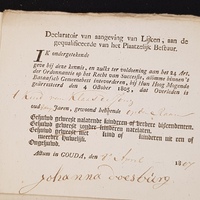 Declaratoir van aangeving van Lijken, aan de
gequalificeerde van het Plaatzelijk Bestuur.
IK ondergetekende
geve bij deze kennis, en zulks ter voldoening aan het 24 Art.
der Ordonnantie op het Recht van Successie, alomme binnen 't
Bataafsch Gemeenebest intevoorderen, bij Hun Hoog Mogende
gearresteerd den 4 October 1805, dat Overleden is
oud Jaren, gewoond hebbende
Gehuwd geweest nalatende kinderen of verdere discendenten.
Gehuwd geweest zonder kinderen natelaten.
Gehuwd geweest met kind of kinderen uit een of
meerder Huwelijk.
Ongehuwd.
Actum in GOUDA, den 18
Johanna